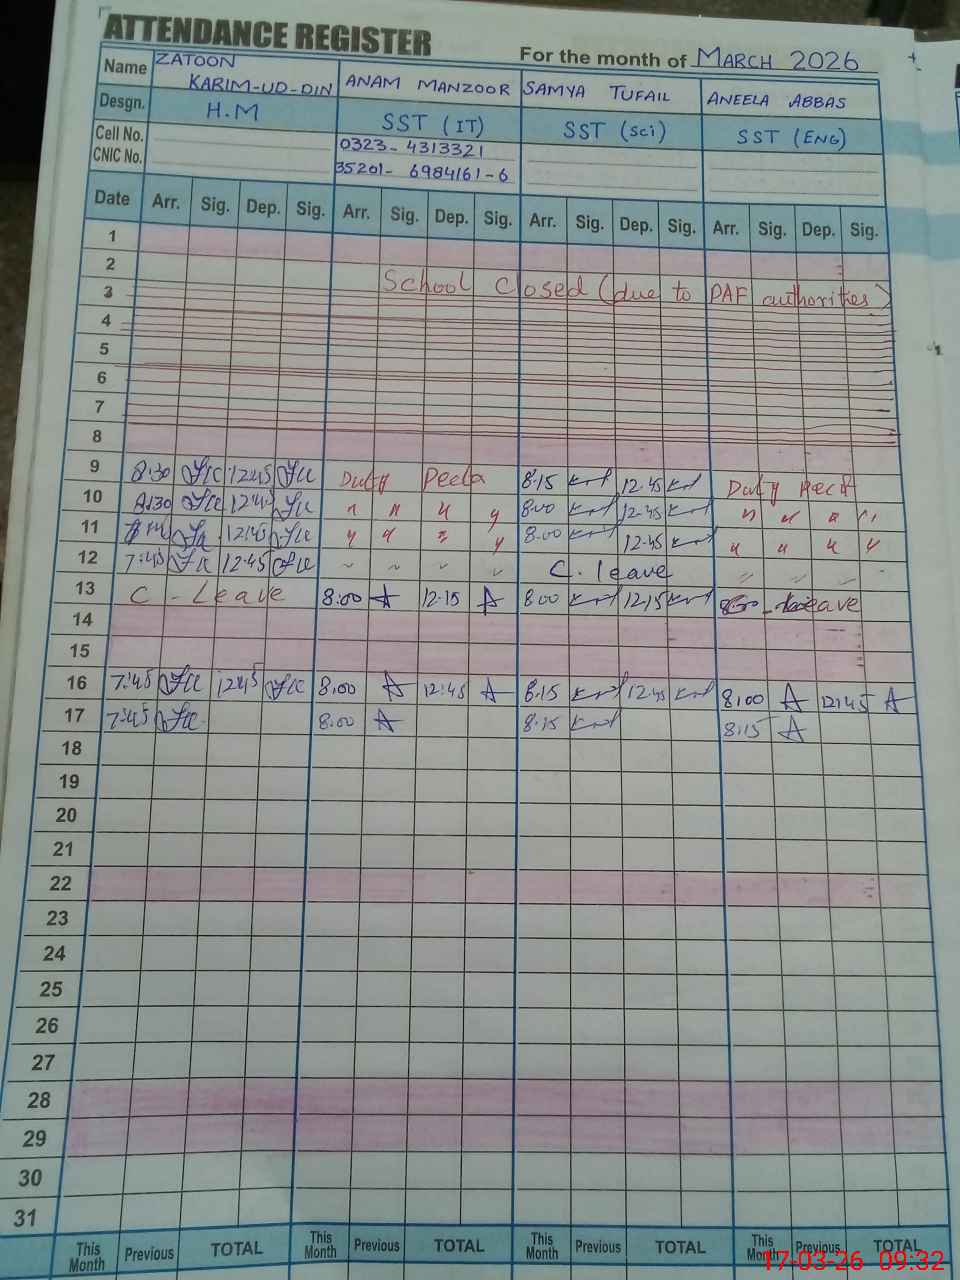 ATTENDANCE REGISTER
For the month of MARCH 2026
Name ZATOON KARIM-UD-DIN ANAM MANZOOR SAMYA TUFAIL ANEELA ABBAS
Desgn. H.M SST (IT) SST (Sci) SST (ENG)
Cell No. 0323-4313321
CNIC No. 35201-6984161-6
Date Arr. Sig. Dep. Sig. Arr. Sig. Dep. Sig. Arr. Sig. Dep. Sig. Arr. Sig. Dep. Sig.
1
2
3 School Closed (due to PAF authorities)
4
5
6
7
8
9 8:30 12:45 Duty 8:15 12:45 Duty
10 8:30 12:45 8:00 12:45
11 12:45 8:00 12:45
12 7:45 12:45 C. leave
13 C-Leave 8:00 12:15 8:00 12:15 leave
14
15
16 7:45 12:45 8:00 12:45 8:15 12:45 8:00 12:45
17 7:45 8:00 8:15 8:15
18
19
20
21
22
23
24
25
26
27
28
29
30
31
This Month Previous TOTAL This Month Previous TOTAL This Month Previous TOTAL This Month Previous TOTAL
17-03-26 09:32